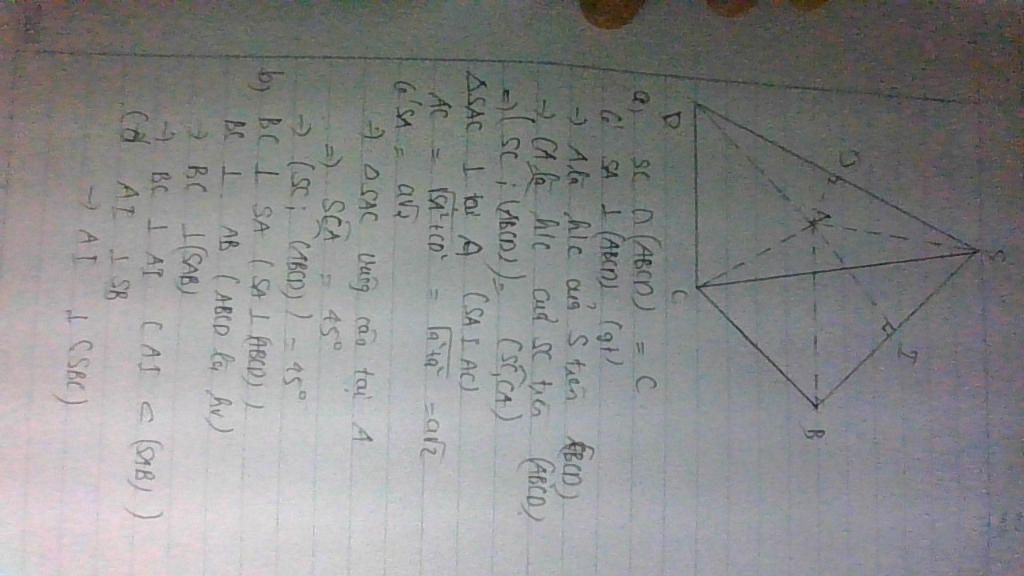 S
A
B
C
D
I
a) SC ∩ (ABCD) = C
Có SA ⊥ (ABCD) (gt)
→ A là h/c của S trên (ABCD)
→ CA là h/c của SC trên (ABCD)
=> (SC; (ABCD)) = (SC, CA)
ΔSAC ⊥ tại A (SA ⊥ AC)
AC = = √a²+a² = a√2
Có SA = a√2
→ ΔSAC vuông cân tại A
=> SCA = 45°
→ (SC; (ABCD)) = 45°
b) BC ⊥ SA (SA ⊥ (ABCD))
BC ⊥ AB (ABCD là hv)
→ BC ⊥ (SAB)
→ BC ⊥ AI (AI ⊂ (SAB))
Có AI ⊥ SB
→ AI ⊥ (SBC)